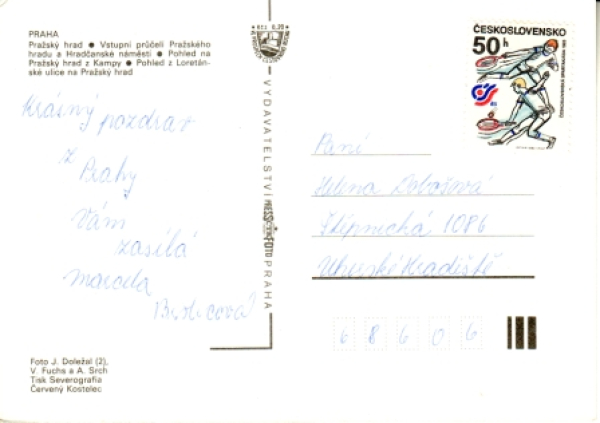 PRAHA
Pražský hrad ● Vstupní průčelí Pražského
hradu a Hradčanské náměstí ● Pohled na
Pražský hrad z Kampy ● Pohled z Loretán-
ské ulice na Pražský hrad
Krásný pozdrav
z
Prahy
Vám
zasílá
Marcela
Foto J. Doležal (2),
V. Fuchs a A. Srch
Tisk Severografia
Červený Kostelec
VYDAVATELSTVÍ PRESSFOTO PRAHA
ČESKOSLOVENSKO
50 h
Paní
Helena Dobošová
Štěpnická 1086
Uherské Hradiště
68606